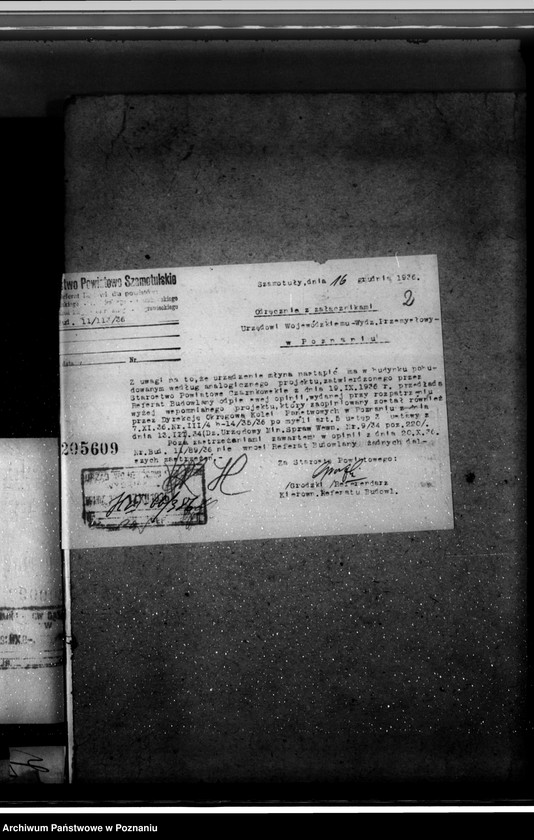 stwo Powiatowe Szamotulskie
Bud. 11/113/36
Nr
Szamotuły,dnia 16 grudnia 1936.
2
Odręcznie z załącznikami
Urzędowi Wojewódzkiemu-Wydz.Przemysłowy-
w Poznaniu
Z uwagi na to,że urządzenie młyna nastąpić ma w budynku pobu-
dowanym według analogicznego projektu,zatwierdzonego przez
Starostwo Powiatowe Czarnkowskie z dnia 19.IX.1936 r. przedkłada
Referat Budowlany odpis swej opinii,wydanej przy rozpatrzeniu
wyżej wspomnianego projektu,który zaopiniowany został również
przez Dyrekcję Okręgową Kolei Państwowych w Poznaniu z dnia
7.XI.36.Nr.III/4 h-14/35/36 po myśli art.5 ustęp 3 ustawy z
dnia 13.III.34(Dz.Urzędowy Min.Spraw Wewn. Nr.9/34 poz.220/.
Poza zastrzeżeniami zawartemi w opinii z dnia 20.X.36.
Nr.Bud. 11/89/36 nie wnosi Referat Budowlany żadnych dal-
szych zastrzeżeń.
295609
Za Starostę Powiatowego:
/Grodzki /Referendarz
Kierown.Referatu Budowl.
Archiwum Państwowe w Poznaniu